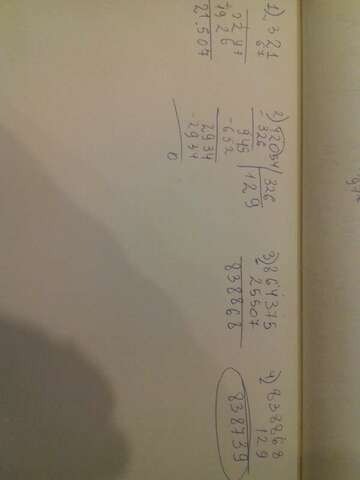 1) 321
67
2247
+1926
21.507
2) 42054 | 326
- 326 | 129
945
- 652
2934
- 2934
0
3) 864375
- 25507
838868
4) 838868
- 129
838739